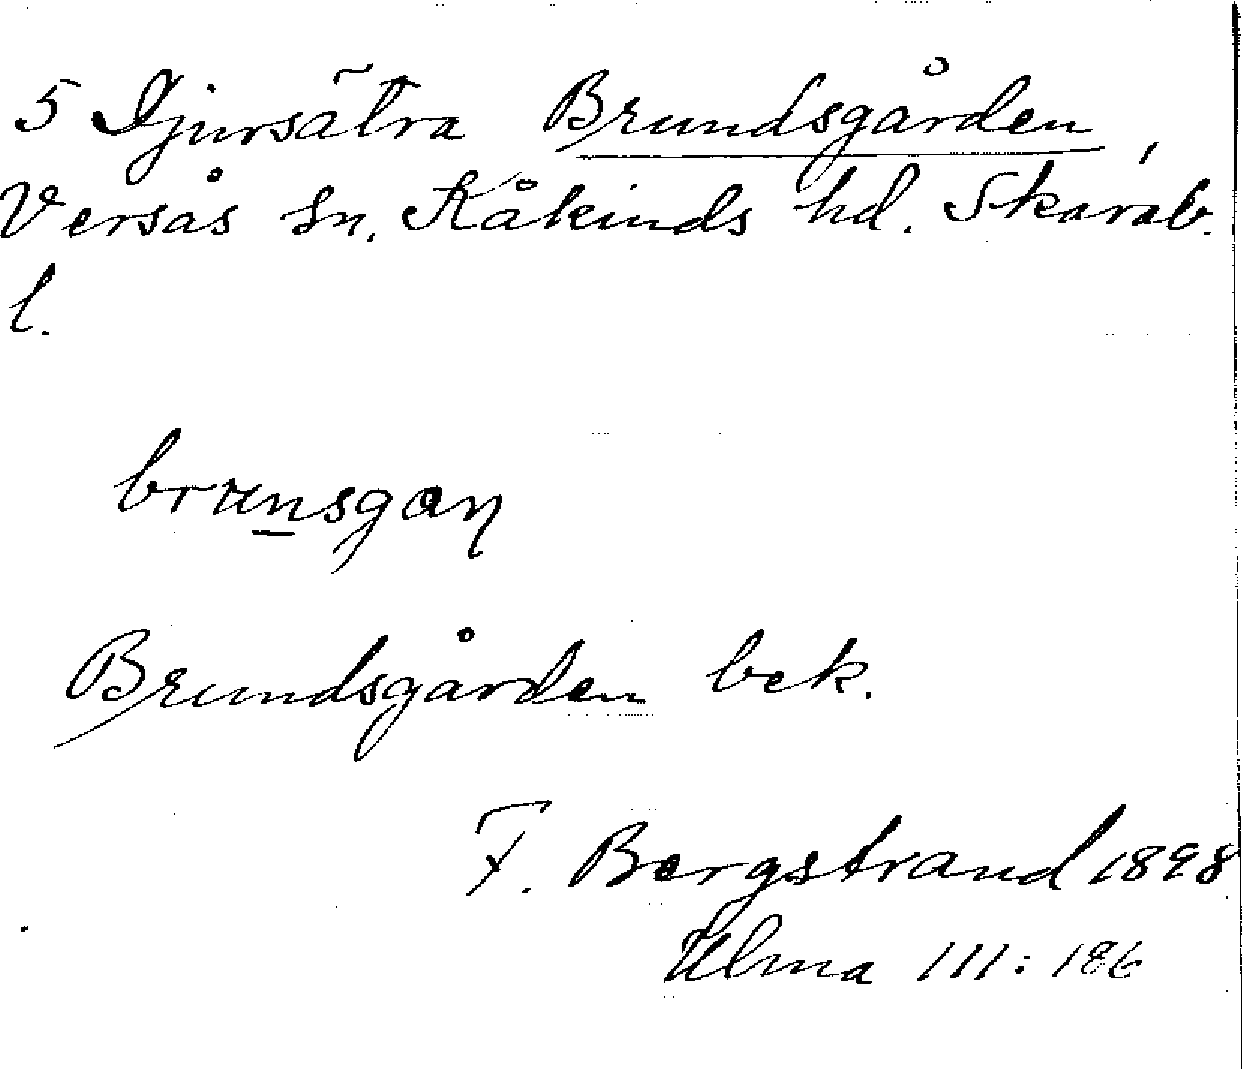 5 Djursätra Brundsgården,
Versås sn. Kåkinds hd. Skarab.
l.
brunsgaɳ
Brundsgården bek.
F. Bergstrand 1898
Ulma 111:186